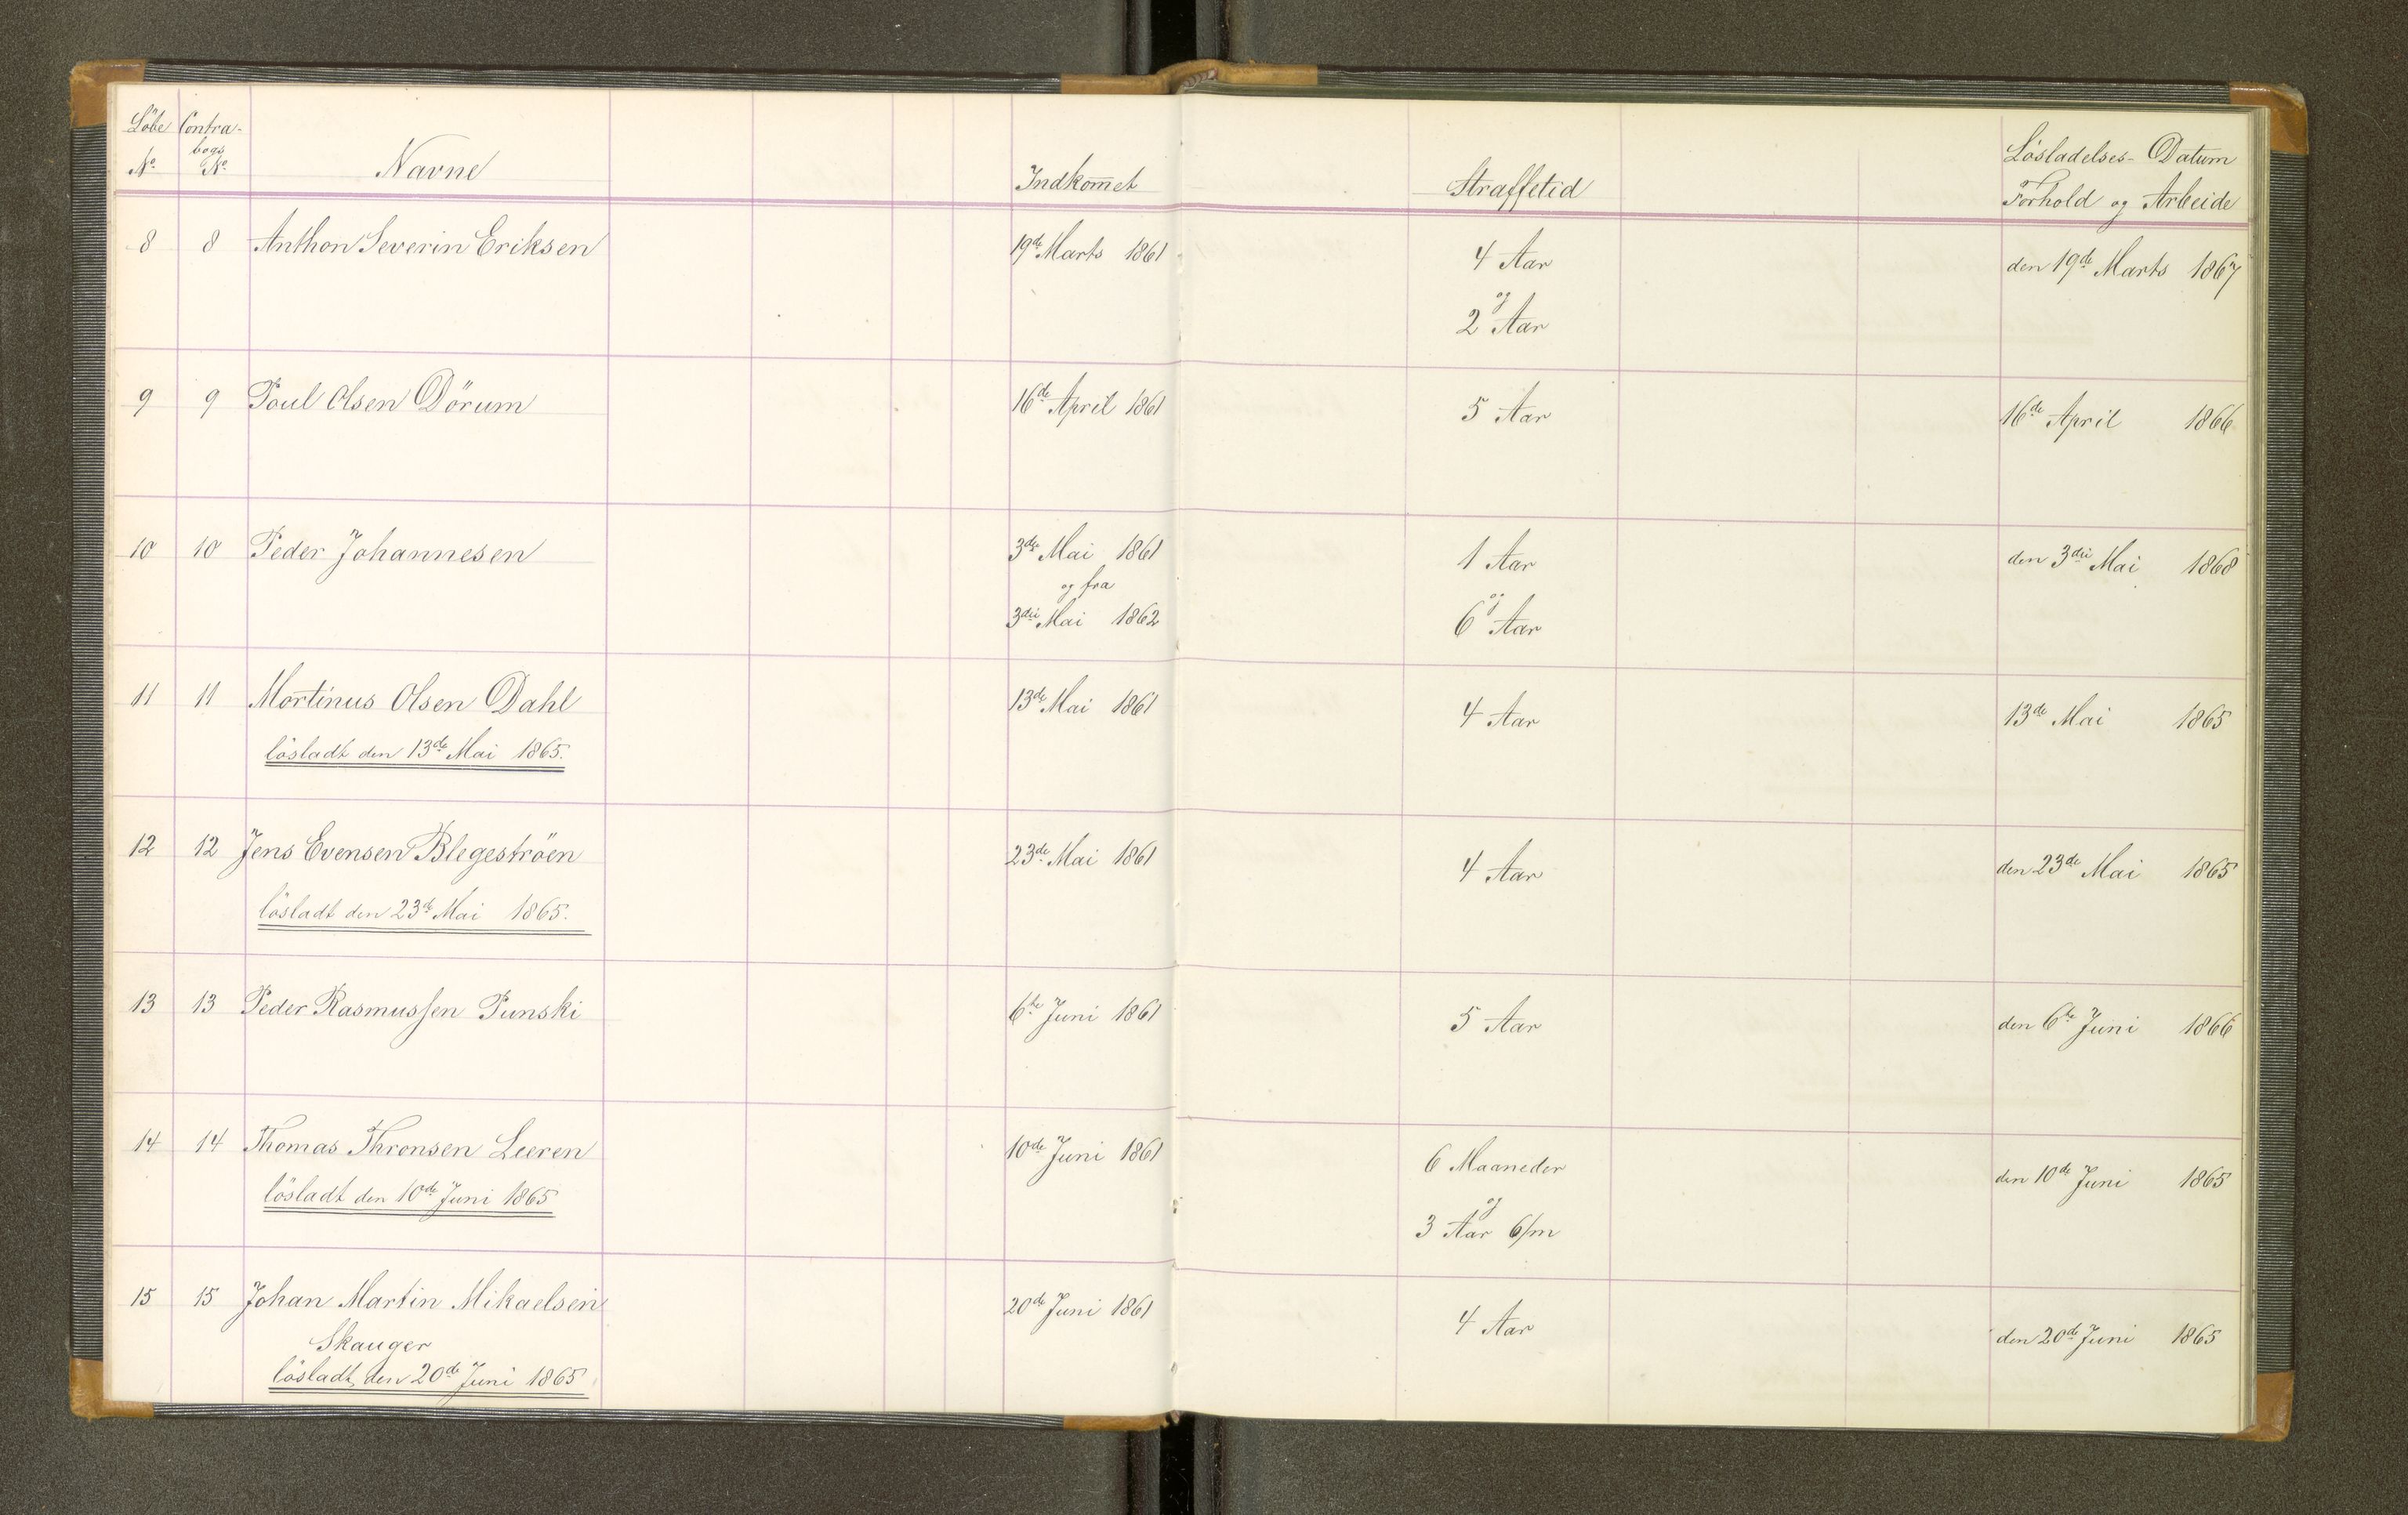 Löbe Contra-
bogs
No. No. Navne Indkom̅et Straffetid Lösladelses- Datum
Forhold og Arbeide
8 8 Anthon Severin Eriksen 19de Marts 1861 4 Aar den 19de Marts 1867
og
2 Aar
9 9 Poul Olsen Dörum 16de April 1861 5 Aar 16de April 1866
10 10 Peder Johannesen 3die Mai 1861 1 Aar den 3die Mai 1868
og fra og
3die Mai 1862 6 Aar
11 11 Mortinus Olsen Dahl 13de Mai 1861 4 Aar 13de Mai 1865
lösladt den 13de Mai 1865.
12 12 Jens Evensen Blegeströen 23de Mai 1861 4 Aar den 23de Mai 1865
lösladt den 23de Mai 1865.
13 13 Peder Rasmussen Punski 6te Juni 1861 5 Aar den 6te Juni 1866
14 14 Thomas Thronsen Leeren 10de Juni 1861 6 Maaneder den 10de Juni 1865
lösladt den 10de Juni 1865 og
3 Aar 6/m
15 15 Johan Martin Mikaelsen 20de Juni 1861 4 Aar den 20de Juni 1865
Skauger
lösladt den 20de Juni 1865